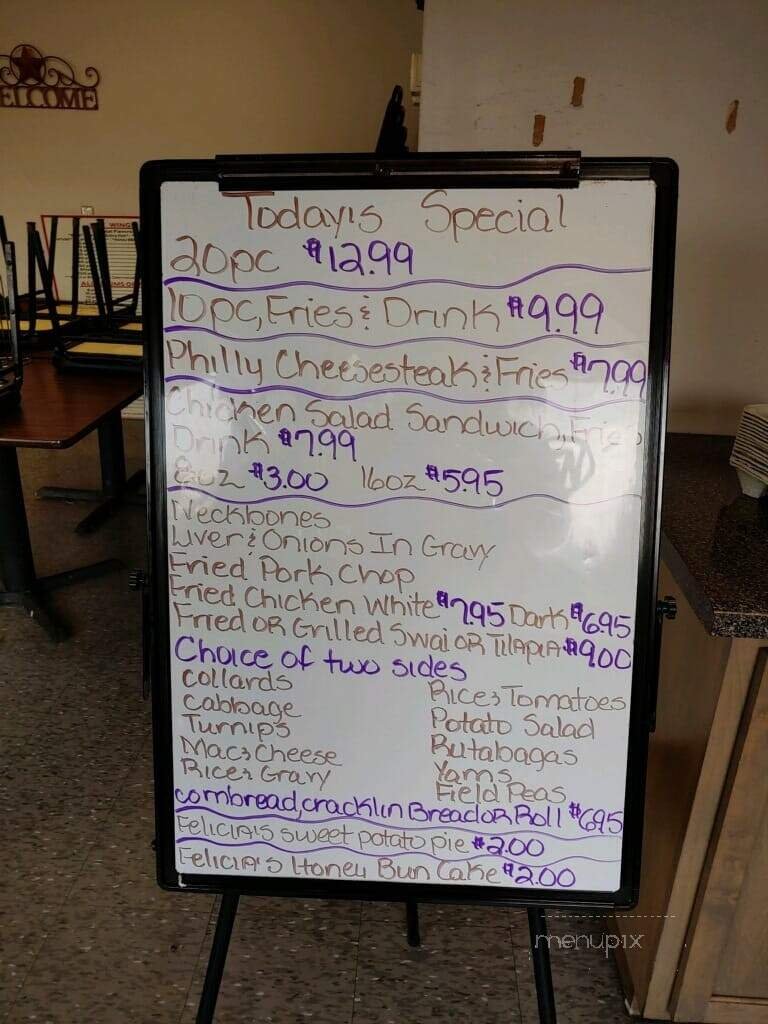 ELCOME
WING
Today's Special
20pc $12.99
10pc, Fries & Drink $9.99
Philly Cheesesteak & Fries $7.99
Chicken Salad Sandwich, Fries
Drink $7.99
8oz $3.00 16oz $5.95
Neckbones
Liver & Onions In Gravy
Fried Pork Chop
Fried Chicken White $7.95 Dark $6.95
Fried OR Grilled Swai OR Tilapia $9.00
Choice of two sides
Collards
Cabbage
Turnips
Mac & Cheese
Rice & Gravy
Rice & Tomatoes
Potato Salad
Rutabagas
Yams
Field Peas
cornbread, cracklin Bread OR Roll $6.95
Felicia's sweet potato pie $2.00
Felicia's Honey Bun Cake $2.00
menupix